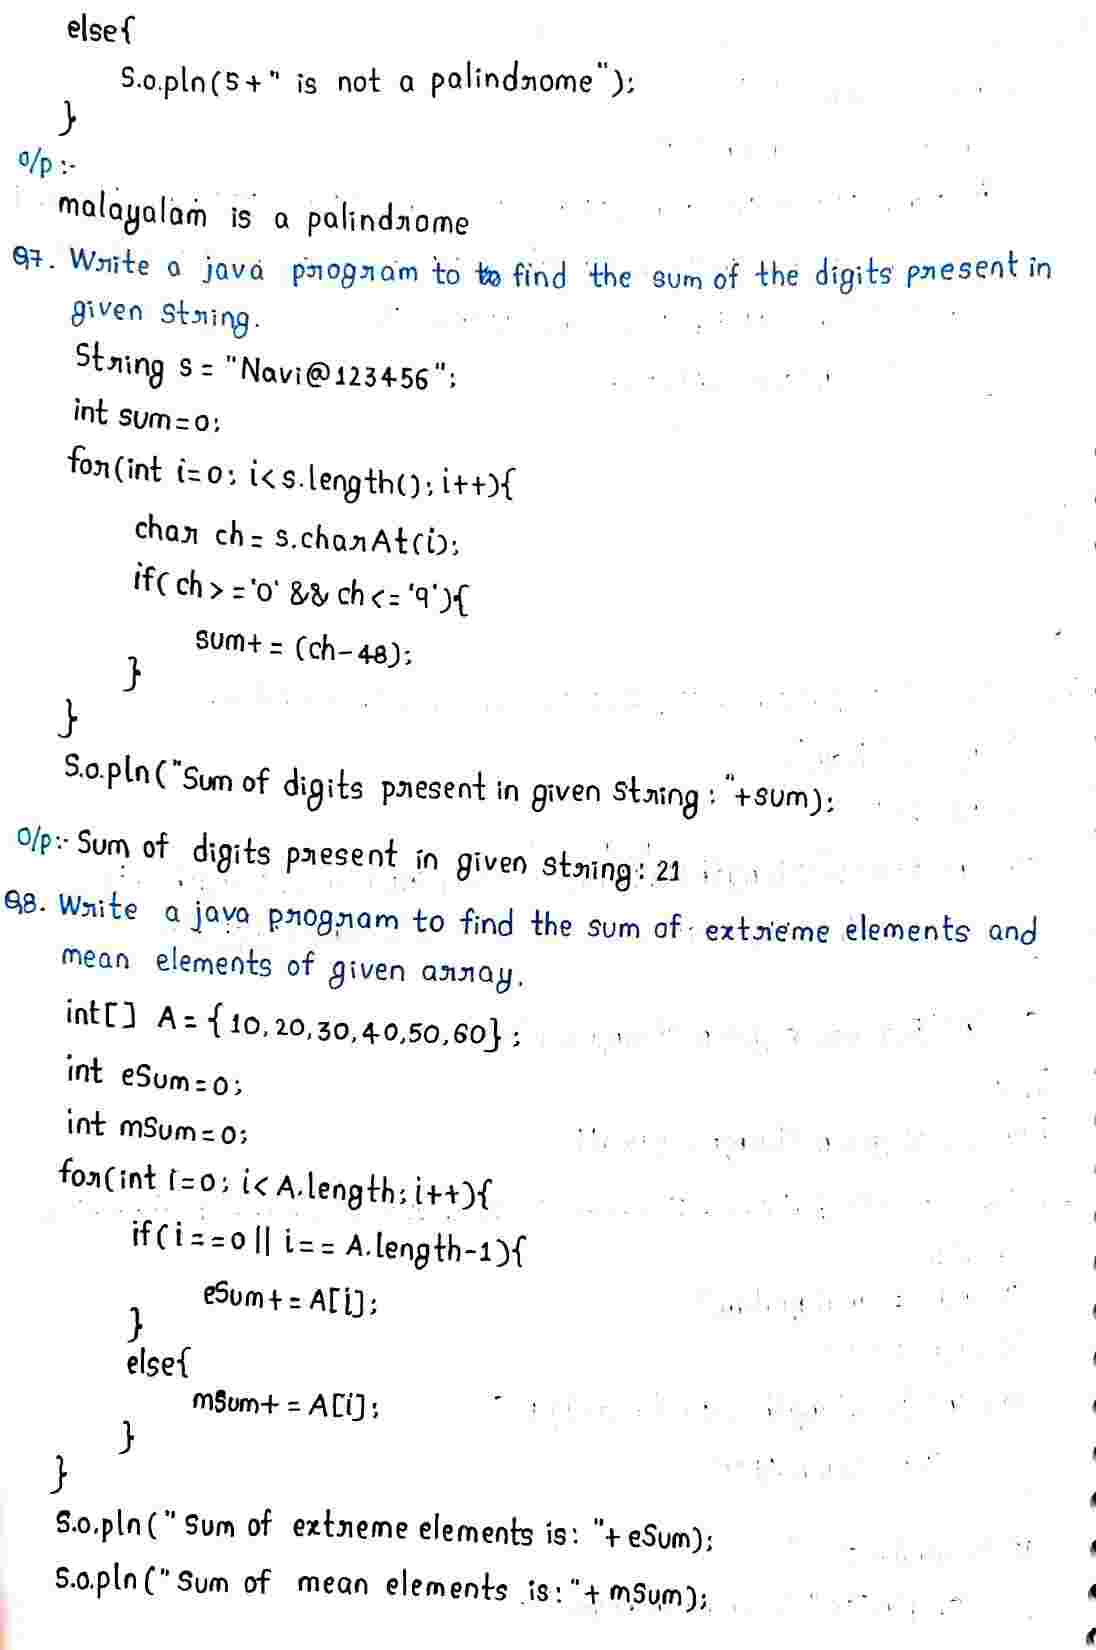 else{
S.o.pln(s+" is not a palindrome");
}
o/p :-
malayalam is a palindrome
Q7. Write a java program to to find the sum of the digits present in
given String.
String s = "Navi@123456";
int sum=0;
for(int i=0; i<s.length(); i++){
char ch = s.charAt(i);
if( ch > = '0' && ch <= '9'){
sum+ = (ch-48);
}
}
S.o.pln("Sum of digits present in given string : "+sum);
O/p:- Sum of digits present in given string: 21
Q8. Write a java program to find the sum of extreme elements and
mean elements of given array.
int[] A = {10,20,30,40,50,60};
int eSum=0;
int mSum=0;
for(int i=0; i< A.length; i++){
if(i==0 || i== A.length-1){
eSum+ = A[i];
}
else{
mSum+ = A[i];
}
}
S.o.pln(" Sum of extreme elements is: "+ eSum);
S.o.pln("Sum of mean elements is:"+ mSum);